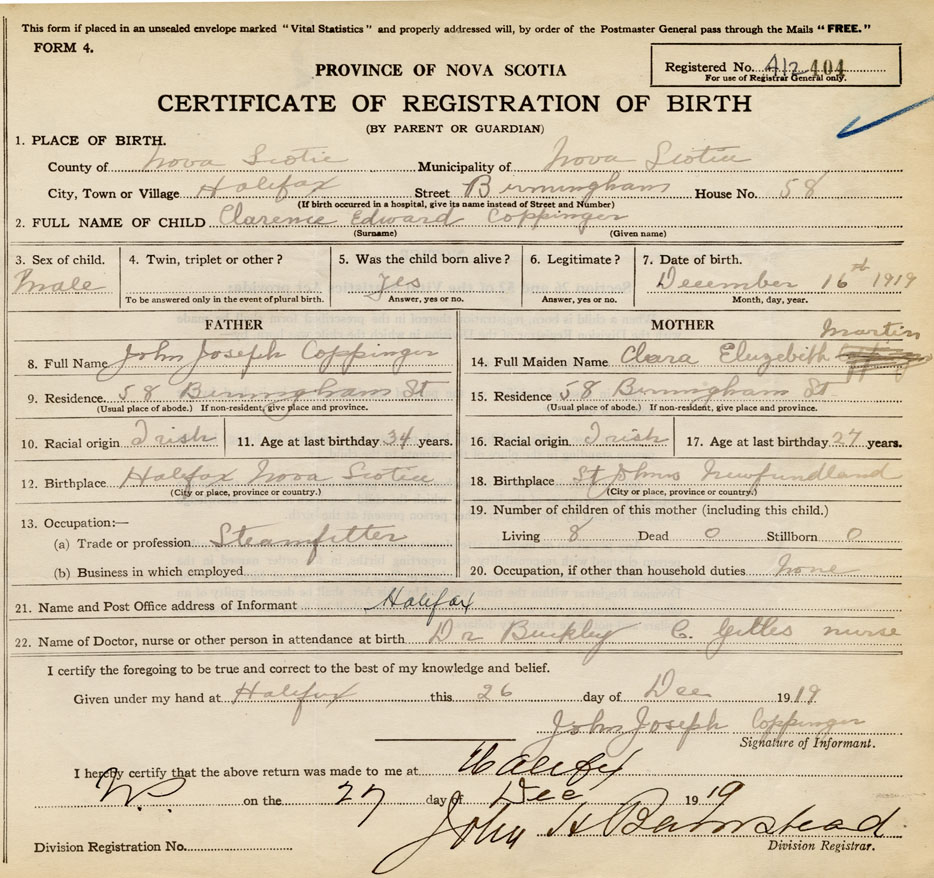 This form if placed in an unsealed envelope marked "Vital Statistics" and properly addressed will, by order of the Postmaster General pass through the Mails "FREE."
FORM 4.
Registered No. 404
For use of Registrar General only.
PROVINCE OF NOVA SCOTIA
CERTIFICATE OF REGISTRATION OF BIRTH
(BY PARENT OR GUARDIAN)
1. PLACE OF BIRTH.
County of Nova Scotia Municipality of Nova Scotia
City, Town or Village Halifax Street Birmingham House No. 58
(If birth occurred in a hospital, give its name instead of Street and Number)
2. FULL NAME OF CHILD Clarence Edward Coppinger
(Surname) (Given name)
3. Sex of child. 4. Twin, triplet or other? 5. Was the child born alive? 6. Legitimate? 7. Date of birth.
Male Yes December 16th 1919
To be answered only in the event of plural birth. Answer, yes or no. Answer, yes or no. Month, day, year.
FATHER MOTHER
8. Full Name John Joseph Coppinger 14. Full Maiden Name Clara Eluzebith Martin
9. Residence 58 Birmingham St 15. Residence 58 Birmingham St
(Usual place of abode.) If non-resident, give place and province. (Usual place of abode.) If non-resident, give place and province.
10. Racial origin Irish 11. Age at last birthday 34 years. 16. Racial origin Irish 17. Age at last birthday 27 years.
12. Birthplace Halifax Nova Scotia 18. Birthplace St Johns Newfoundland
(City or place, province or country.) (City or place, province or country.)
13. Occupation:— 19. Number of children of this mother (including this child.)
(a) Trade or profession Steamfitter Living 8 Dead 0 Stillborn 0
(b) Business in which employed 20. Occupation, if other than household duties None
21. Name and Post Office address of Informant Halifax
22. Name of Doctor, nurse or other person in attendance at birth Dr Buckley C. nurse
I certify the foregoing to be true and correct to the best of my knowledge and belief.
Given under my hand at Halifax this 26 day of Dec 1919
John Joseph Coppinger
Signature of Informant.
I hereby certify that the above return was made to me at Halifx
on the 27 day of Dec 1919
John H Barnstead
Division Registration No. Division Registrar.